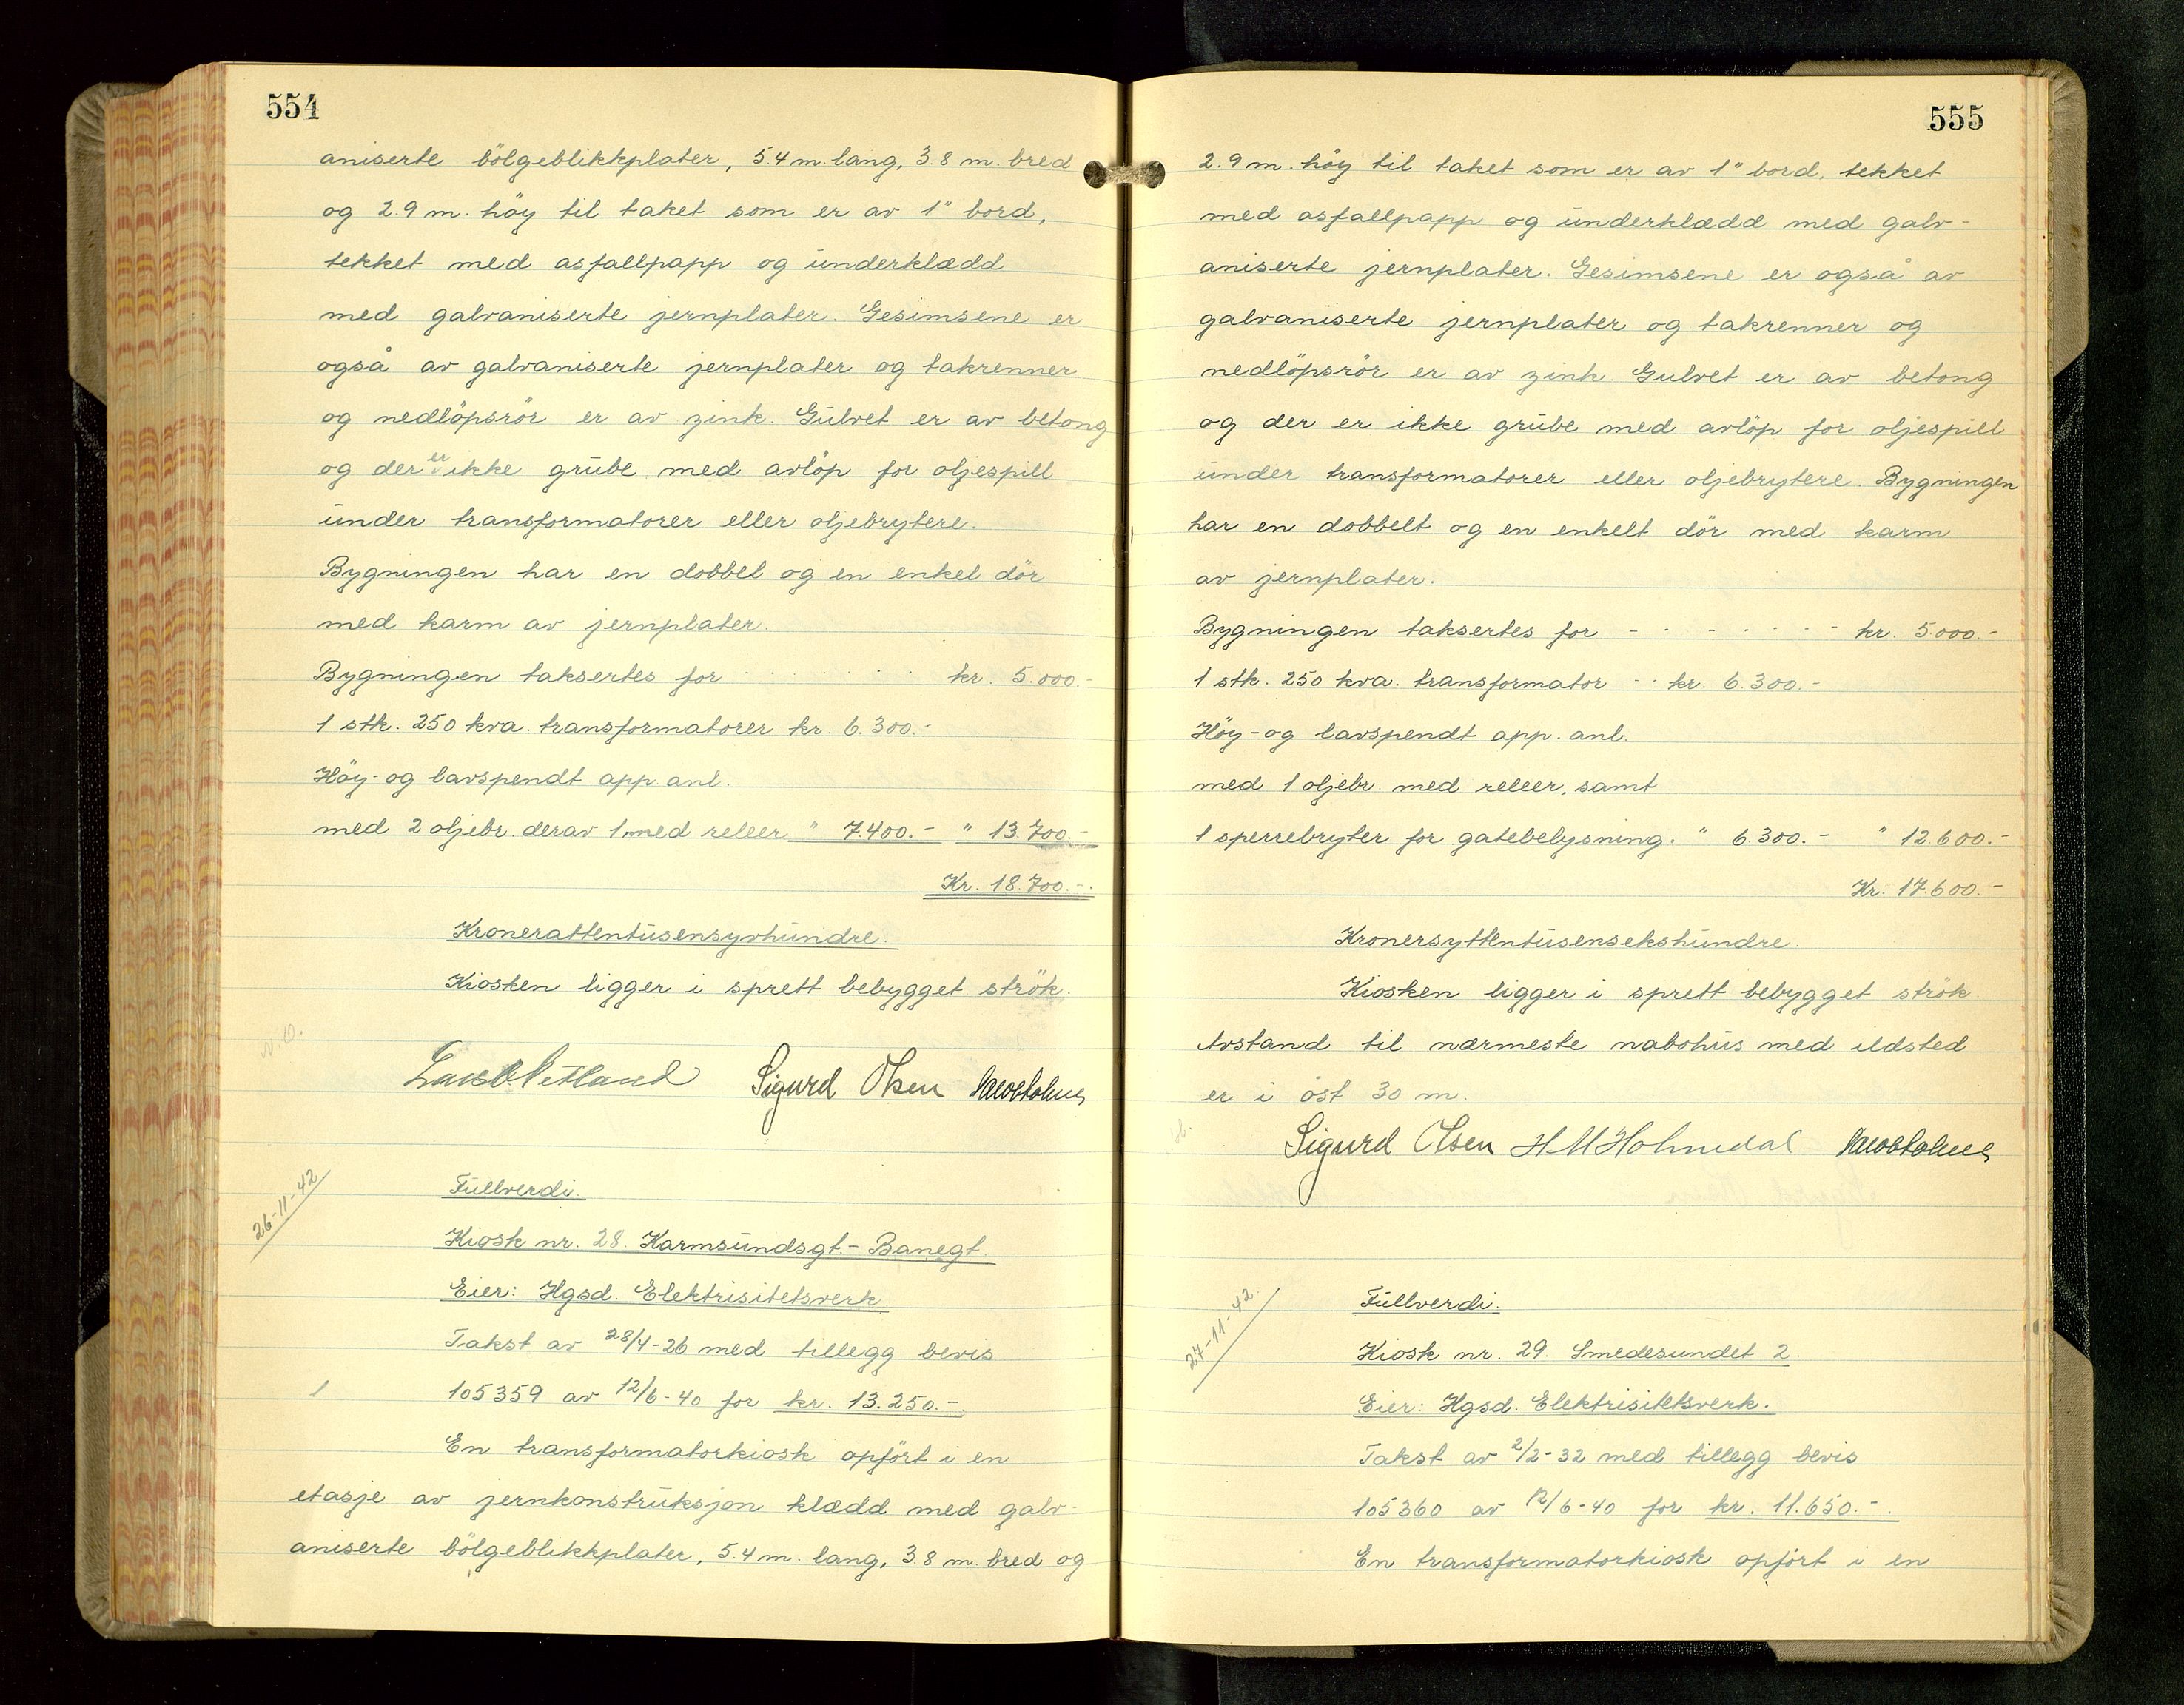 554
aniserte bölgeblikkplater, 5.4 m. lang, 3.8 m. bred
og 2.9 m. höy til taket som er av 1" bord,
tekket med asfallpapp og underklædd
med galvaniserte jernplater. Gesimsene er
også av galvaniserte jernplater og takrenner
og nedlöpsrör er av zink. Gulvet er av betong
og der er ikke grube med avlöp for oljespill
under transformatorer eller oljebrytere.
Bygningen har en dobbel og en enkel dör
med karm av jernplater.
Bygningen taksertes for . . . . . . . kr. 5.000.-
1 stk. 250 kva. transformatorer kr. 6.300.-
Höy- og lavspendt app. anl.
med 2 oljebr. derav 1 med releer " 7.400.- " 13.700.-
Kr. 18.700.-.
Kronerattentusensyvhundre.
Kiosken ligger i sprett bebygget strök.
Sigurd Olsen
26-11-42
Fullverdi.
Kiosk nr. 28. Karmsundsgt.- Banegt.
Eier: Hgsd. Elektrisitetsverk
Takst av 28/4-26 med tillegg bevis
1 105359 av 12/6-40 for kr. 13.250.-.
En transformatorkiosk opfört i en
etasje av jernkonstruksjon klædd med galv-
aniserte bölgeblikkplater, 5.4 m. lang, 3.8 m. bred og
555
2.9 m. höy til taket som er av 1" bord, tekket
med asfallpapp og underklædd med galv-
aniserte jernplater. Gesimsene er også av
galvaniserte jernplater og takrenner og
nedlöpsrör er av zink. Gulvet er av betong
og der er ikke grube med avlöp for oljespill
under transformatorer eller oljebrytere. Bygningen
har en dobbelt og en enkelt dör med karm
av jernplater.
Bygningen taksertes for - - - - - - - kr. 5.000.-
1 stk. 250 kva. transformator - - kr. 6.300.-
Höy- og lavspendt app. anl.
med 1 oljebr. med releer, samt
1 sperrebryter for gatebelysning. " 6.300.- " 12.600.-
Kr. 17.600.-
Kronersyttentusensekshundre.
Kiosken ligger i sprett bebygget strök.
Avstand til nærmeste nabohus med ildsted
er i öst 30 m.
Sigurd Olsen H M Holmedal
27-11-42.
Fullverdi.
Kiosk nr. 29. Smedesundet 2.
Eier: Hgsd. Elektrisitetsverk.
Takst av 2/2-32 med tillegg bevis
105360 av 12/6-40 for kr. 11.650.-.
En transformatorkiosk opfört i en